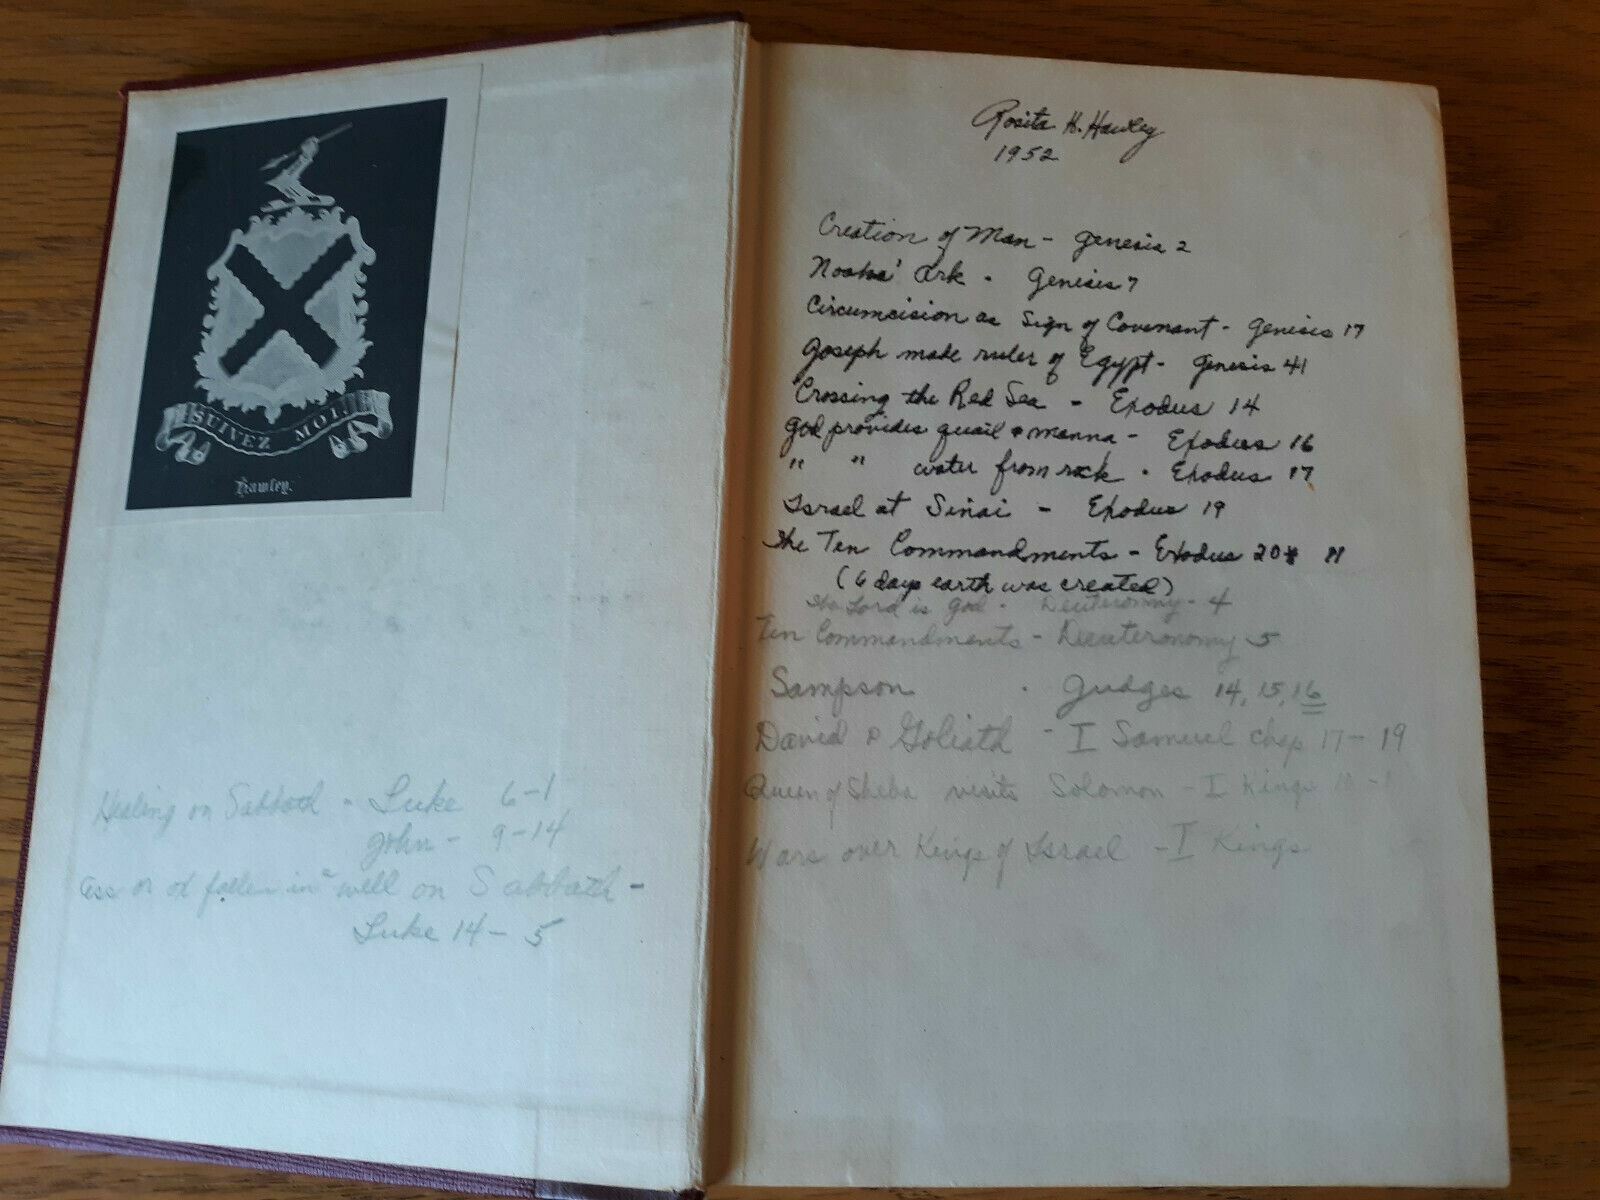 SUIVEZ MOI
Hawley.
Healing on Sabbath - Luke 6-1
John - 9-14
ass or ox fallen in a well on Sabbath -
Luke 14-5
Rosita H. Hawley
1952
Creation of Man - Genesis 2
Noahs' Ark - Genesis 7
Circumcision as Sign of Covenant - Genesis 17
Joseph made ruler of Egypt - Genesis 41
Crossing the Red Sea - Exodus 14
God provides quail & manna - Exodus 16
" " water from rock - Exodus 17
Israel at Sinai - Exodus 19
The Ten Commandments - Exodus 20 11
(6 days earth was created)
The Lord is God - Deuteronomy - 4
Ten Commandments - Deuteronomy 5
Sampson - Judges 14, 15, 16
David & Goliath - I Samuel chap 17-19
Queen of Sheba visits Solomon - I Kings 10-1
Wars over Kings of Israel - I Kings